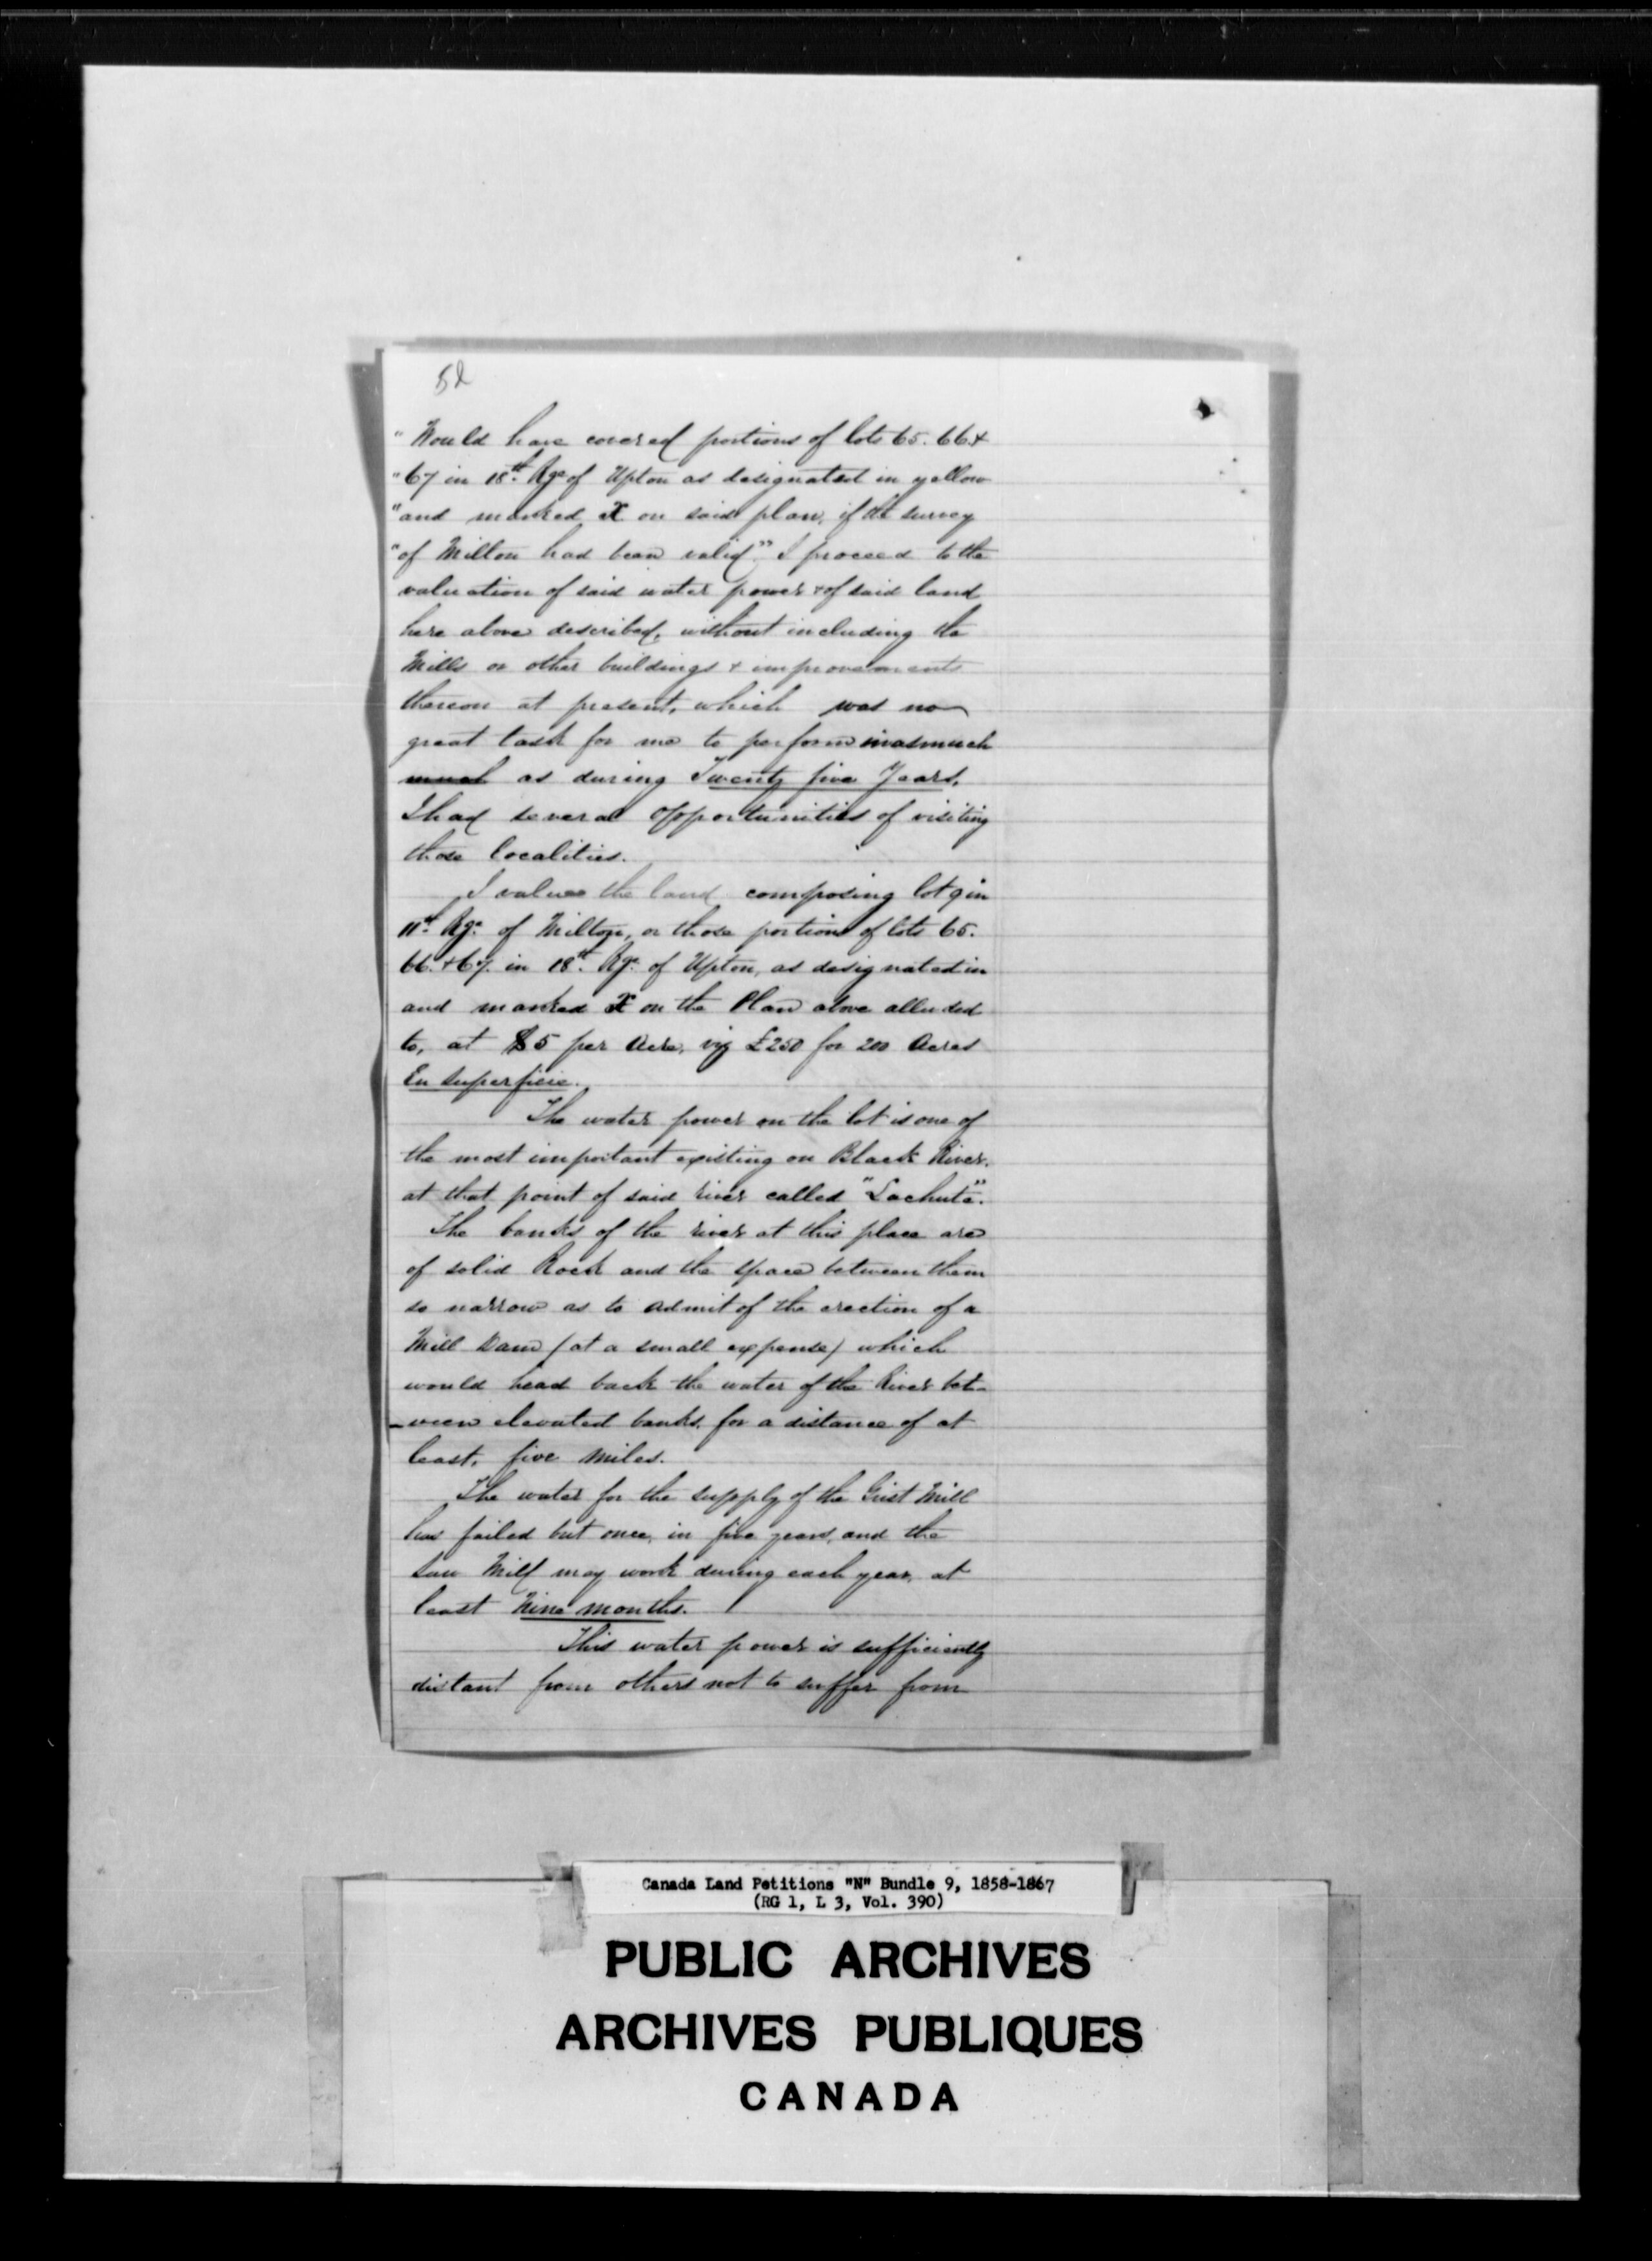 52
"Would have covered portions of lots 65. 66 &
"67 in 18th Rge of Upton as designated in yellow
"and marked X on said plan, if the survey
"of Milton had been valid." I proceed to the
valuation of said water power & of said land
here above described, without including the
Mills or other buildings & improvements
thereon at present, which was no
great task for me to perform inasmuch
much as during Twenty five Years,
I had several opportunities of visiting
those localities.
I value the land composing lot 9 in
11th Rge of Milton, or those portions of lots 65.
66. & 67. in 18th Rge of Upton, as designated in
and marked X on the Plan above alluded
to, at $5 per Acre, viz £250 for 200 Acres
En superficie.
The water power on the lot is one of
the most important existing on Black River.
at that point of said river called "Lachute".
The banks of the river at this place are
of solid Rock and the space between them
so narrow as to admit of the erection of a
Mill Dam (at a small expense) which
would head back the water of the River bet-
-ween elevated banks, for a distance of at
least, five miles.
The water for the supply of the Grist Mill
has failed but once, in five years, and the
Saw Mill may work during each year, at
least Nine months.
This water power is sufficiently
distant from others not to suffer from
Canada Land Petitions "N" Bundle 9, 1858-1867
(RG 1, L 3, Vol. 390)
PUBLIC ARCHIVES
ARCHIVES PUBLIQUES
CANADA